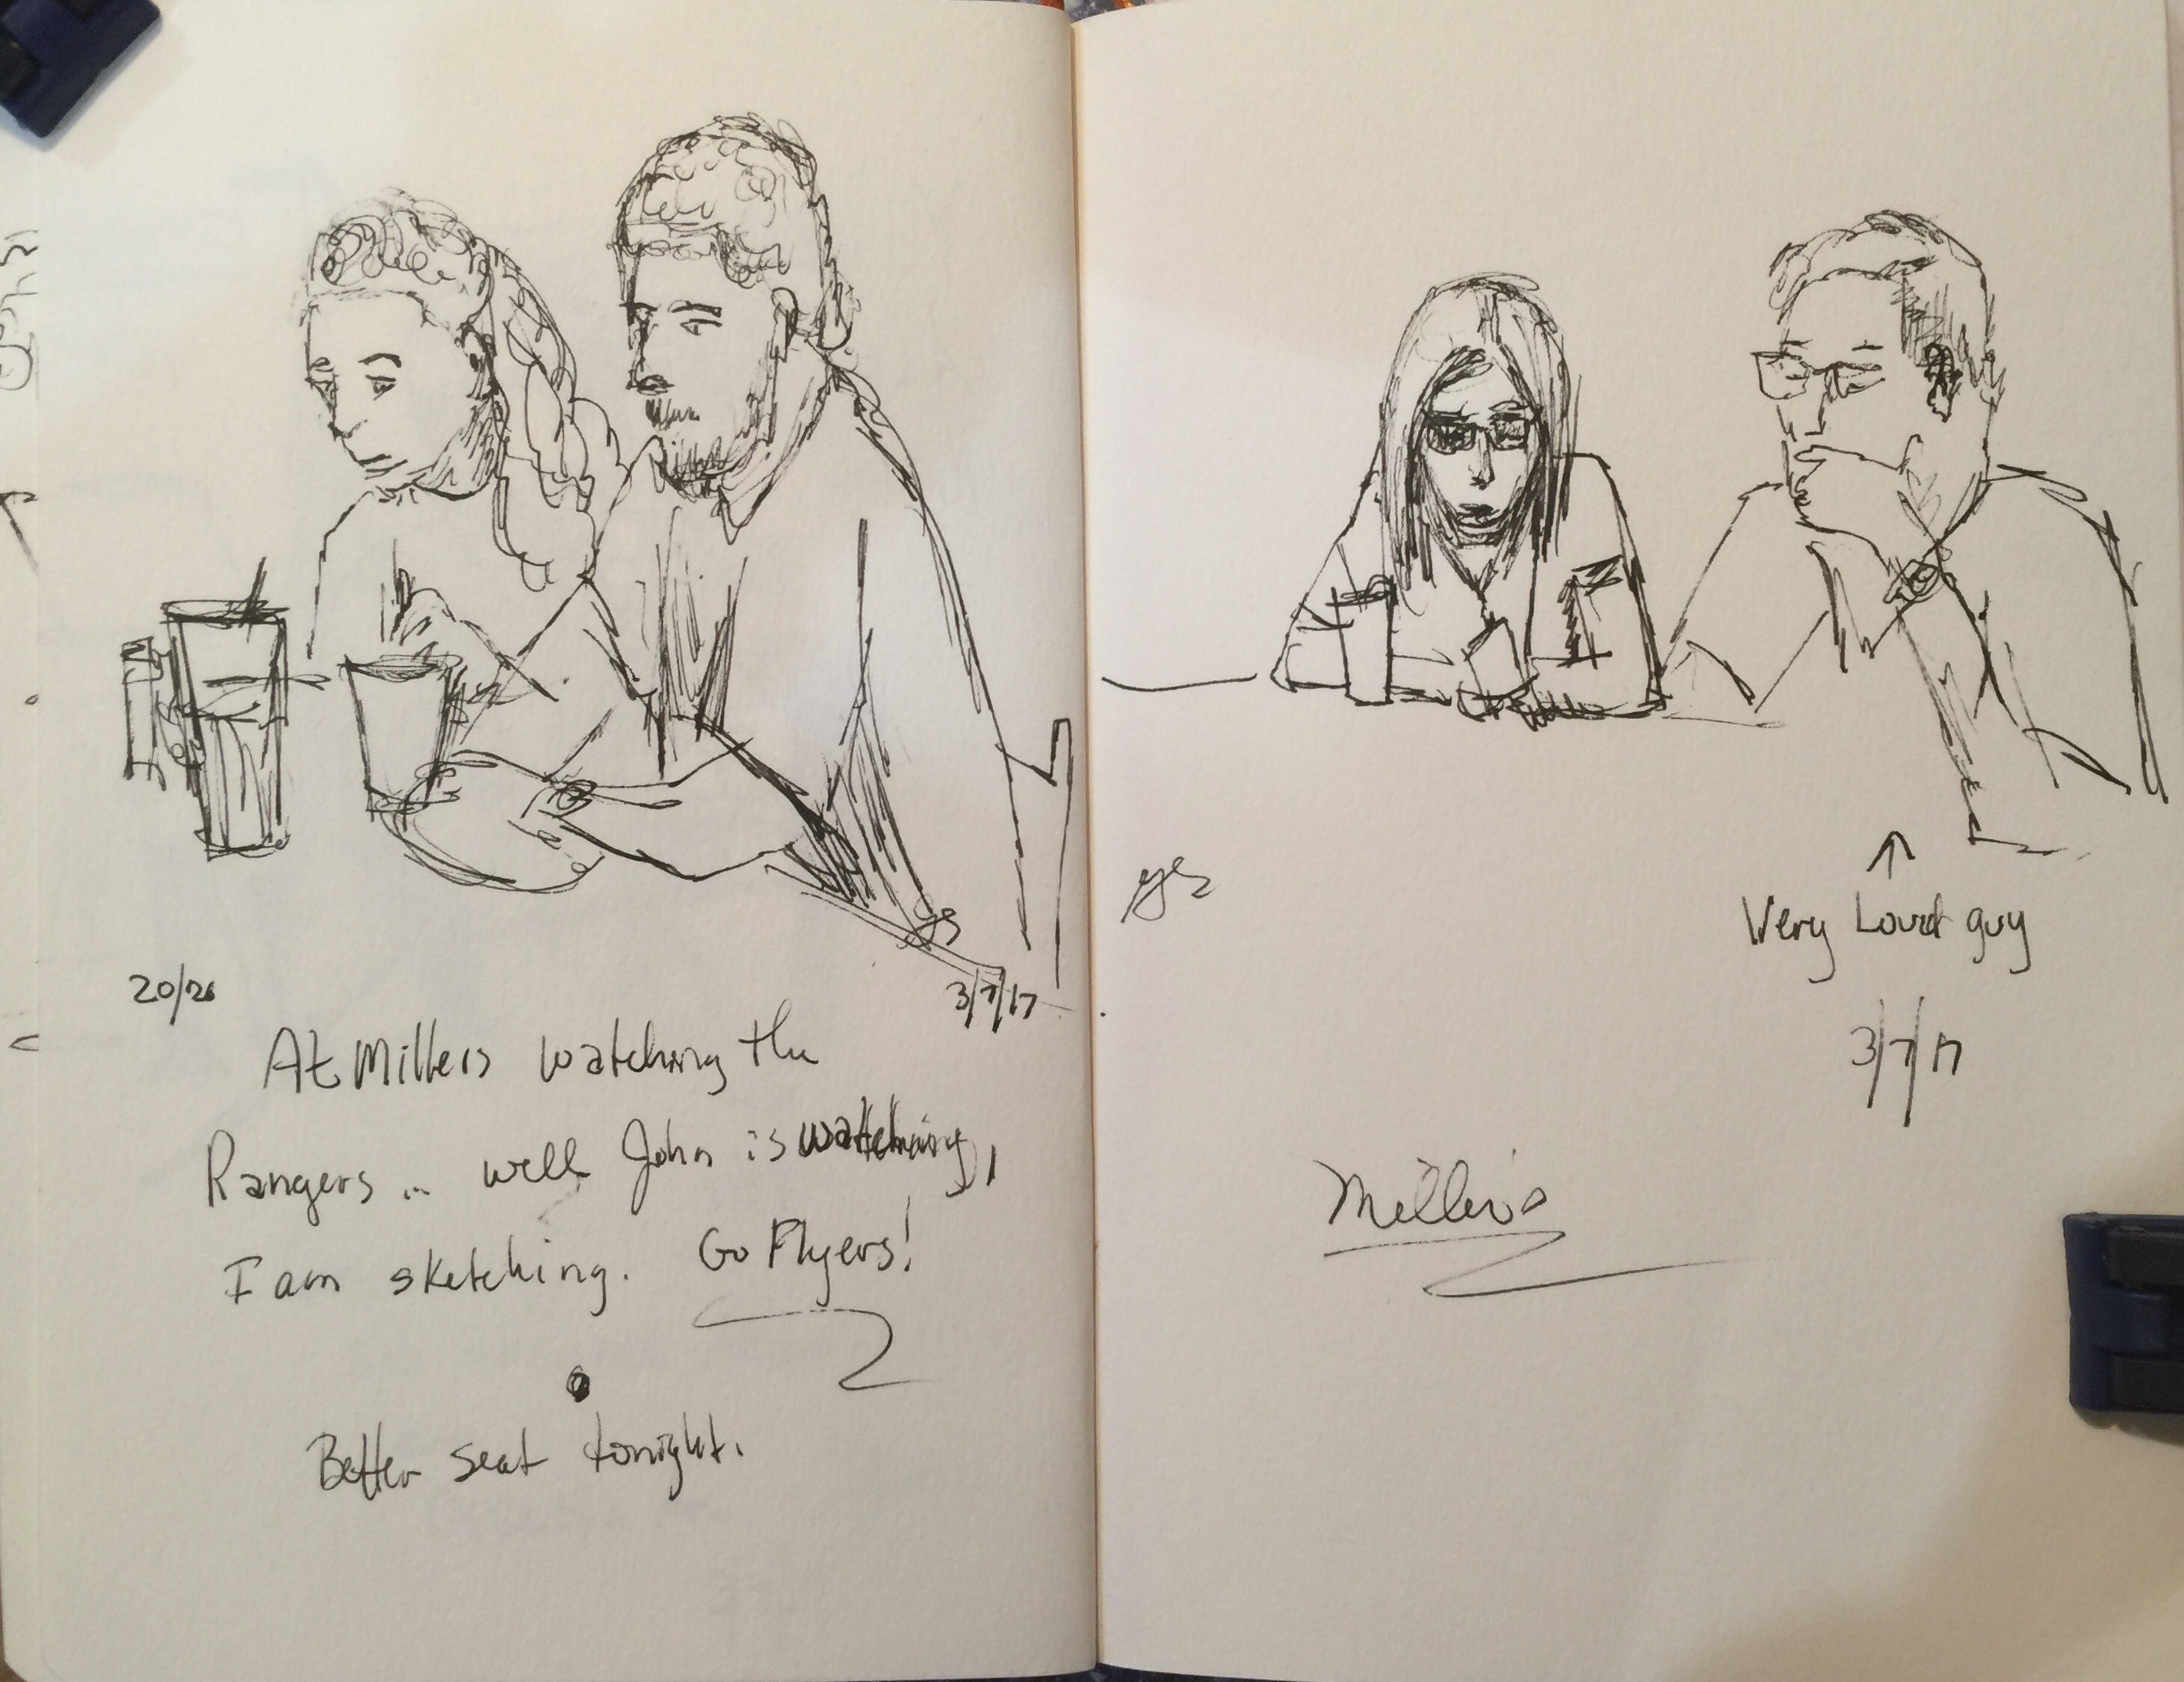 20/26
3/7/17
At Millers watching the
Rangers... well John is watching,
I am sketching. Go Flyers!
Better seat tonight.
Very Loud guy
3/7/17
Miller's